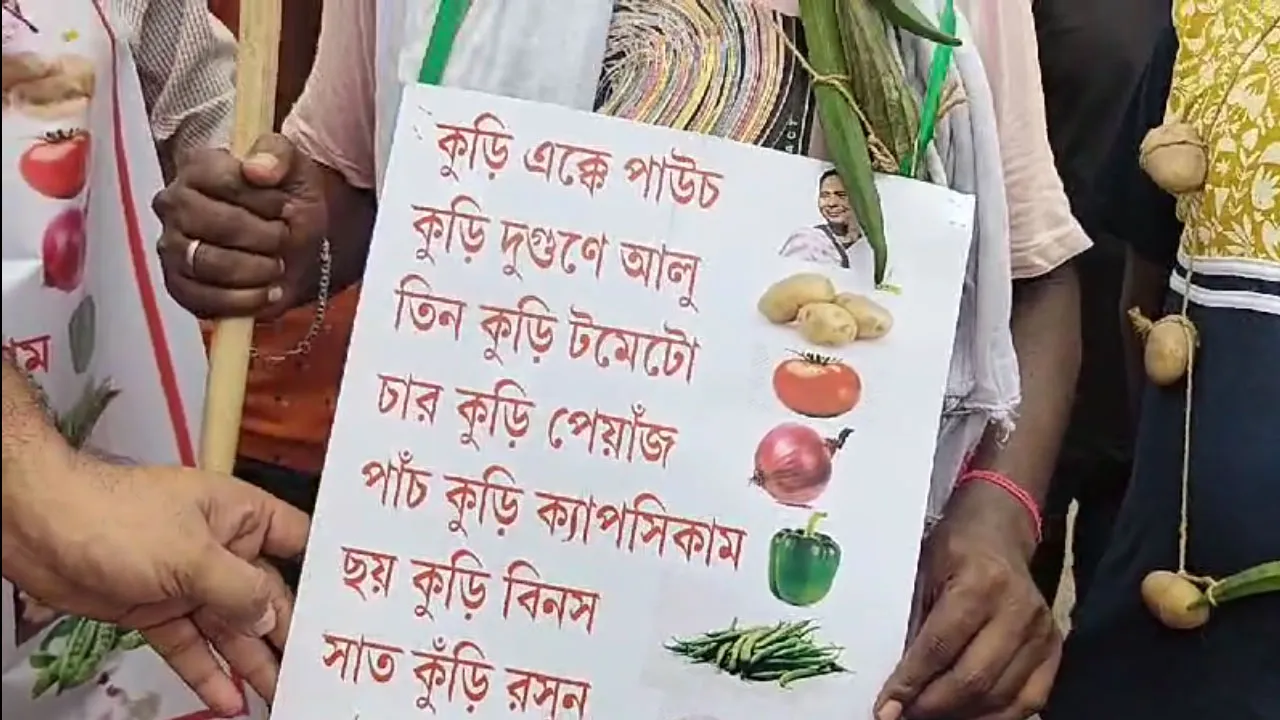 কুড়ি এক্কে পাউচ
কুড়ি দুগুণে আলু
তিন কুড়ি টমেটো
চার কুড়ি পেয়াঁজ
পাঁচ কুড়ি ক্যাপসিকাম
ছয় কুড়ি বিনস
সাত কুঁড়ি রসন